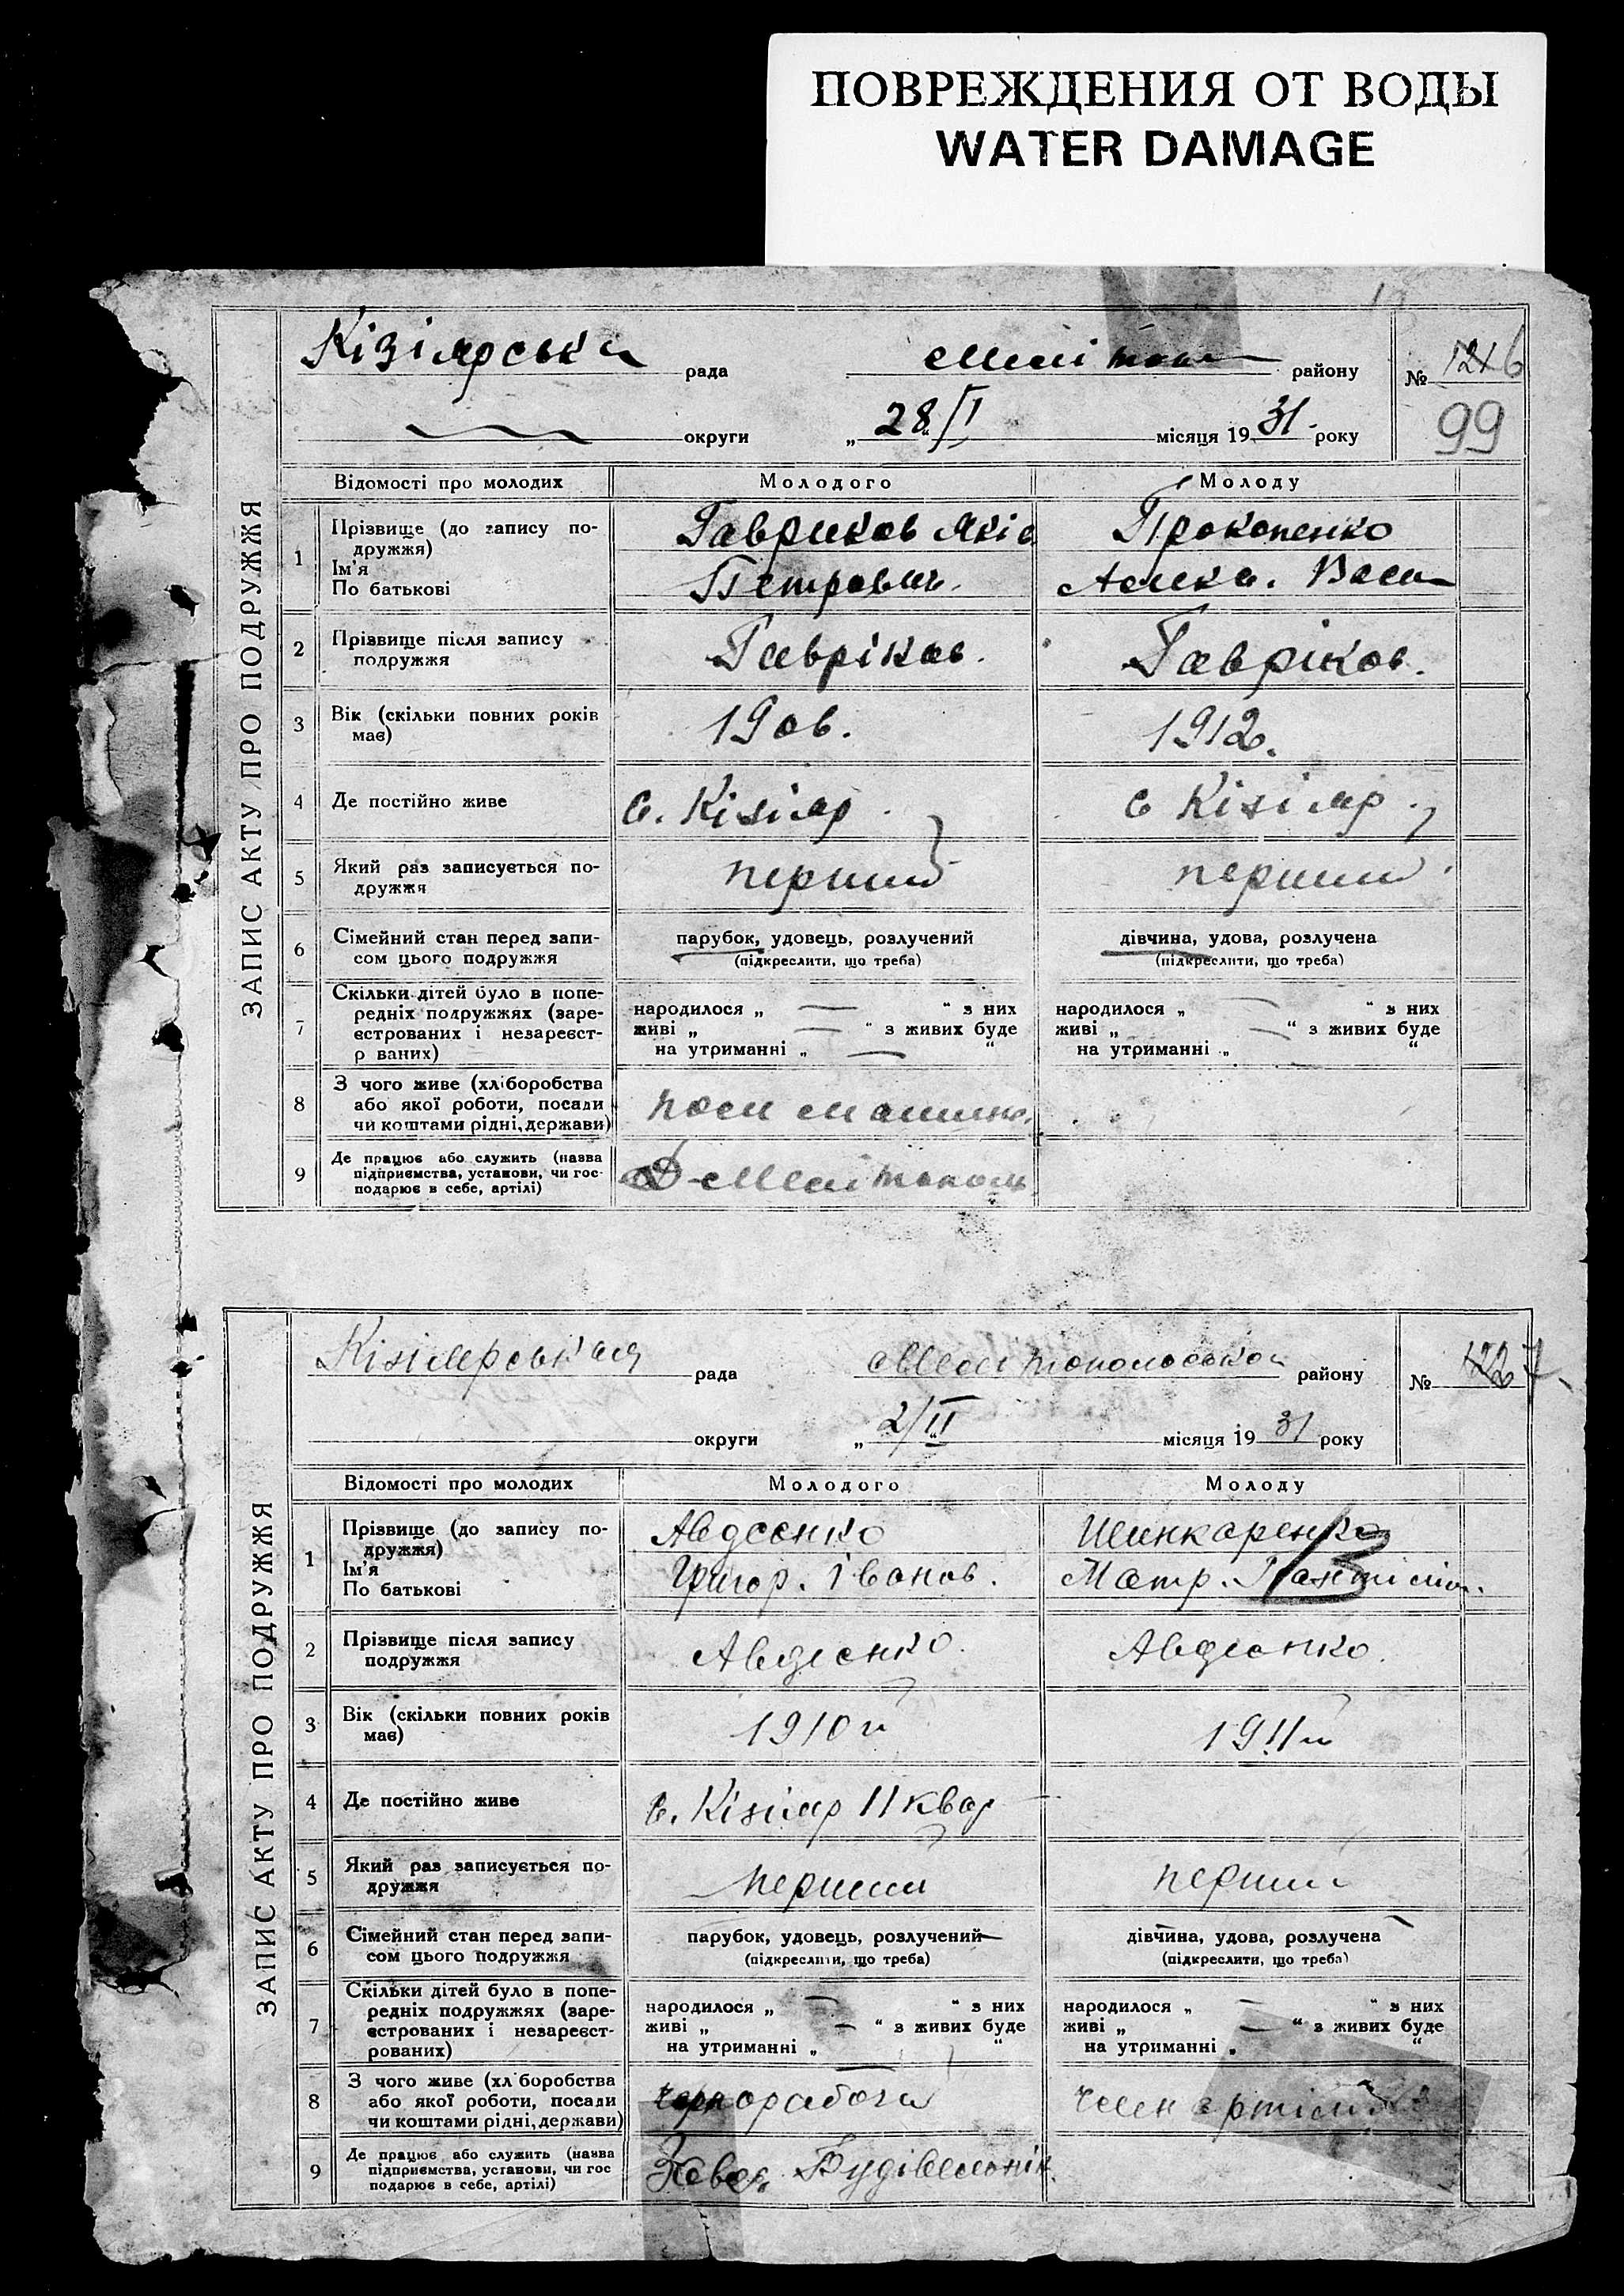 ПОВРЕЖДЕНИЯ ОТ ВОДЫ
WATER DAMAGE
ЗАПИС АКТУ ПРО ПОДРУЖЖЯ
Кізіярська рада району
№ 6
99
округи „ 28/I місяця 1931 року
Відомості про молодих Молодого Молоду
1 Прізвище (до запису по-
дружжя)
Ім'я
По батькові
Гавриков Яків
Петрович.
Прокопенко
Алекс. Васи
2 Прізвище після запису
подружжя
Гавріков. Гавріков.
3 Вік (скільки повних років
має)
1906. 1912.
4 Де постійно живе с. Кізіяр. с Кізіяр.
5 Який раз записується по-
дружжя
перший перший
6 Сімейний стан перед запи-
сом цього подружжя
парубок, удовець, розлучений
(підкреслити, що треба)
дівчина, удова, розлучена
(підкреслити, що треба)
7 Скільки дітей було в попе-
редніх подружжях (заре-
єстрованих і незареєст-
р ваних)
народилося „ — “ з них
живі „ — “ з живих буде
на утриманні „ — “
народилося „ — “ з них
живі „ — “ з живих буде
на утриманні „ “
8 З чого живе (хліборобства
або якої роботи, посади
чи коштами рідні, держави)
9 Де працює або служить (назва
підприємства, установи, чи гос-
подарює в себе, артілі)
Мелітополь
ЗАПИС АКТУ ПРО ПОДРУЖЖЯ
Кізіярська рада Мелітопольського району
№ 7
округи „ 2/II місяця 1931 року
Відомості про молодих Молодого Молоду
1 Прізвище (до запису по-
дружжя)
Ім'я
По батькові
Авдєєнко
Григор. Іванов.
Шинкаренко
Матр.
2 Прізвище після запису
подружжя
Авдєєнко. Авдєєнко.
3 Вік (скільки повних років
має)
1910 1911
4 Де постійно живе с. Кізіяр 11 квар
5 Який раз записується по-
дружжя
перший перший
6 Сімейний стан перед запи-
сом цього подружжя
парубок, удовець, розлучений
(підкреслити, що треба)
дівчина, удова, розлучена
(підкреслити, що треба)
7 Скільки дітей було в попе-
редніх подружжях (заре-
єстрованих і незареєст-
рованих)
народилося „ — “ з них
живі „ — “ з живих буде
на утриманні „ — “
народилося „ — “ з них
живі „ — “ з живих буде
на утриманні „ “
8 З чого живе (хл боробства
або якої роботи, посади
чи коштами рідні, держави)
чорнорабочий член артілі
9 Де працює або служить (назва
підприємства, установи, чи гос
подарює в себе, артілі)
Будівельник.